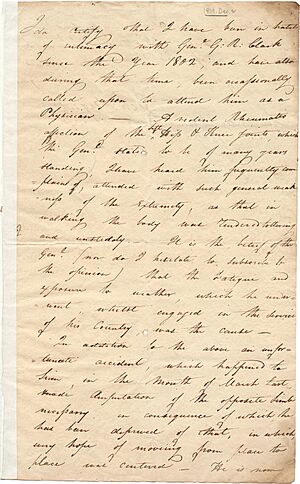 I do certify that I have been in habits
of intimacy with Genl. G. R. Clark
since the Year 1802, and have also
during that time, been occasionally
called upon to attend him as a
Physician — A violent Rheumatic
affection of the left Hip & Knee Joints which
the Genl. stated to be of many years
standing I have heard him frequently com-
plain of, attended with such general weak-
ness of the extremity, as that in
walking the body was rendered tottering
and unsteady. It is the belief of the
Genl. (nor do I hesitate to subscribe to
the opinion) that the fatigue and
exposure to weather, which he under-
went, whilst engaged in the service
of his Country was the cause —
In addition to the above an unfor-
tunate accident, which happened to
him, in the Month of March last,
made Amputation of the opposite limb
necessary in consequence of which he
has been deprived of that, in which
every hope of moving from place to
place was centered — He is now